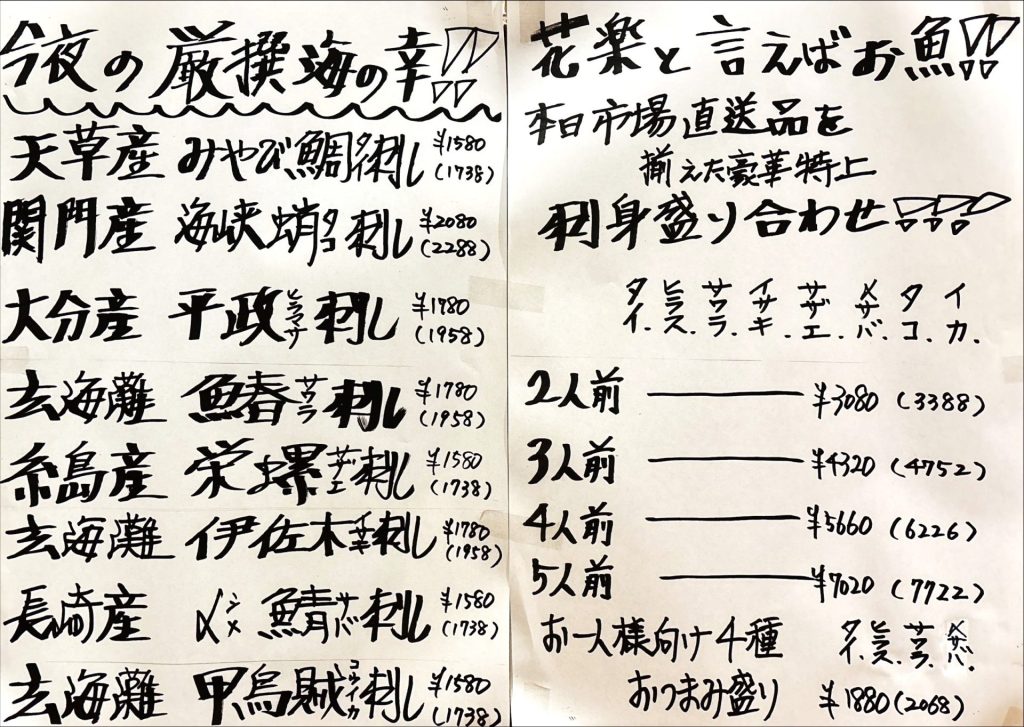 今夜の厳撰海の幸!!
天草産 みやび鯛タイ刺し ¥1580
(1738)
関門産 海峡蛸タコ刺し ¥2080
(2288)
大分産 平政ヒラマサ刺し ¥1780
(1958)
玄海灘 鰆サワラ刺し ¥1780
(1958)
糸島産 栄螺サザエ刺し ¥1580
(1738)
玄海灘 伊佐木イサキ刺し ¥1780
(1958)
長崎産 〆シメ鯖サバ刺し ¥1580
(1738)
玄海灘 甲烏賊コウイカ刺し ¥1580
(1738)
花楽と言えばお魚!!
本日市場直送品を
揃えた豪華特上
刺身盛り合わせ!!!
タイ.ヒラス.サワラ.イサキ.サザエ.〆サバ.タコ.イカ.
2人前 ¥3080 (3388)
3人前 ¥4320 (4752)
4人前 ¥5660 (6226)
5人前 ¥7020 (7722)
お一人様向け4種 タイ.ヒラス.サワラ.〆サバ.
おつまみ盛り ¥1880(2068)